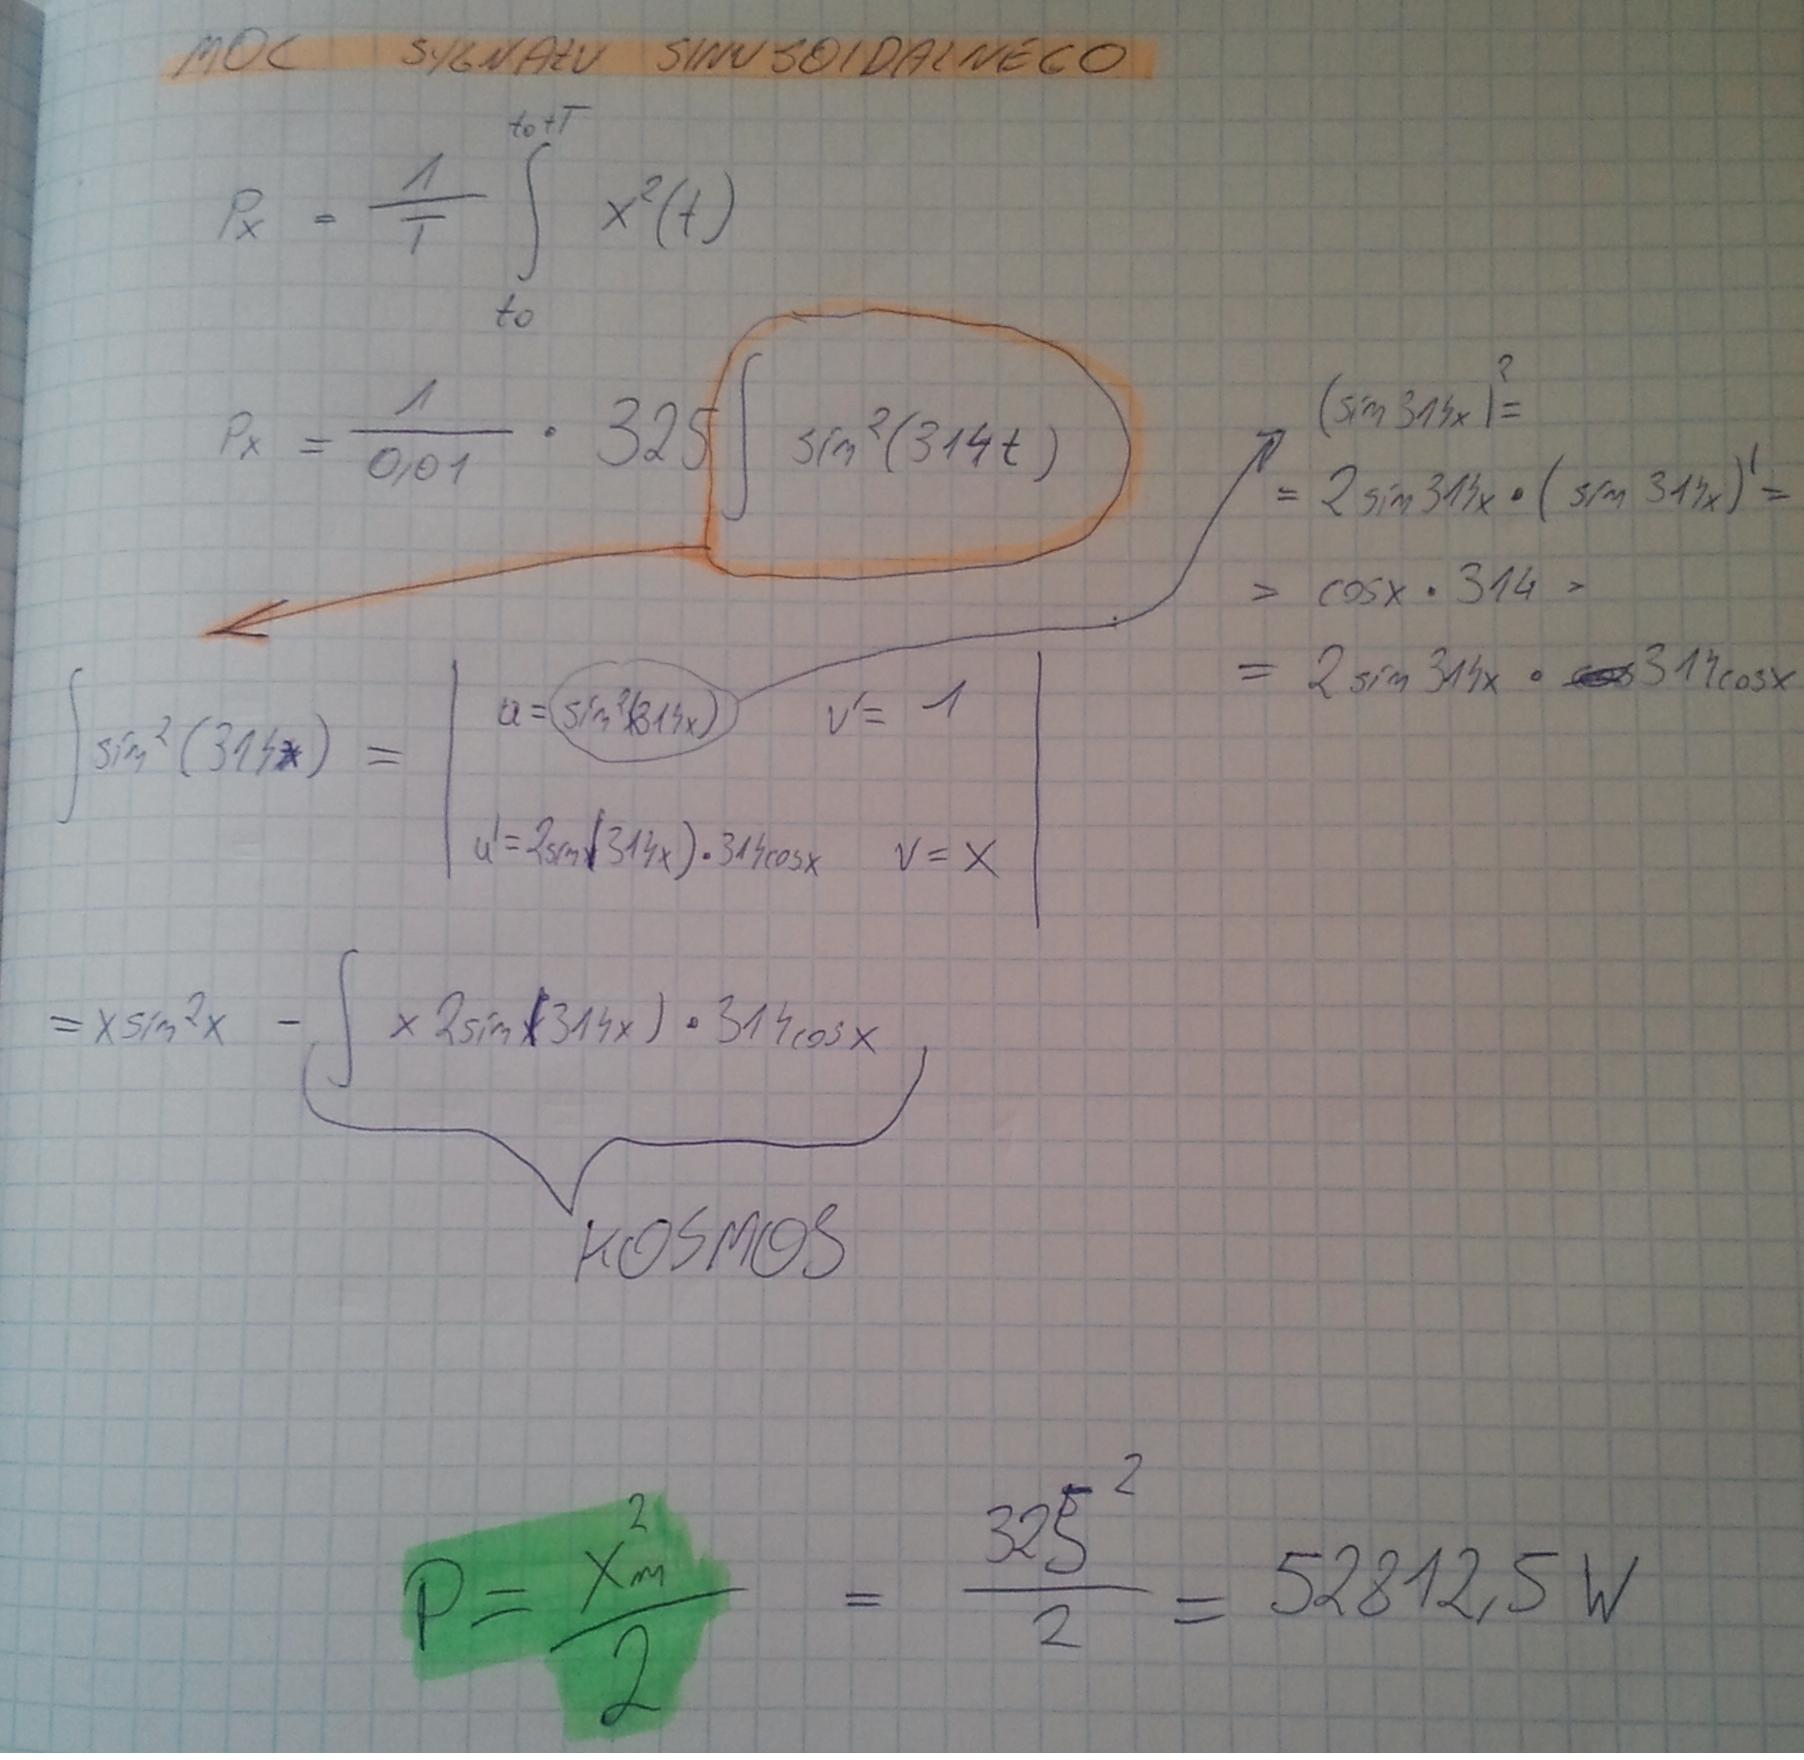 MOC SYGNAŁU SINUSOIDALNEGO
t0+T
Px = 1/T ∫ x²(t)
t0
Px = 1/0,01 · 325 ∫ sin²(314t)
(sin314x)² =
= 2sin314x · (sin314x)' =
> cosx · 314 >
= 2sin314x · 314cosx
∫sin²(314x) = | u = sin²(314x) v' = 1 |
| u' = 2sin(314x) · 314cosx v = x |
= xsin²x - ∫ x 2sin(314x) · 314cosx
KOSMOS
P = Xm²/2 = 325²/2 = 52812,5 W